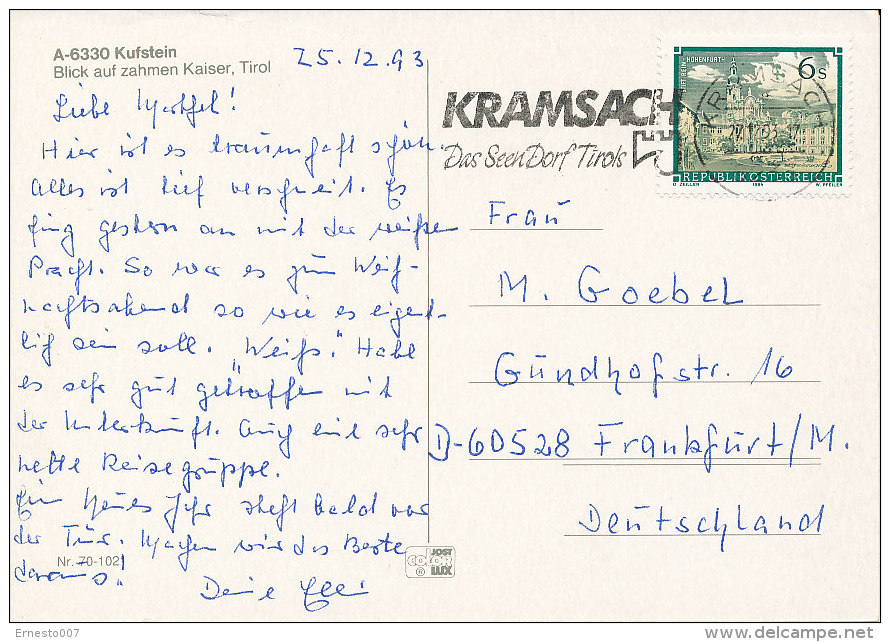 A-6330 Kufstein
Blick auf zahmen Kaiser, Tirol
25.12.93
Liebe
Hier ist es traumhaft schön.
Alles ist tief verschneit. Es
fing gestern an mit der weißen
Pracht. So war es zum Weih-
nachtsabend so wie es eigent-
lich sein soll. "Weiß." Habe
es sehr gut getroffen mit
der Unterkunft. Auch eine sehr
nette Reisegruppe.
Ein Neues Jahr steht bald vor
der Tür. Machen wir das Beste
daraus!
Deine Elli
Nr. 70-1021
JOST
COLOR
LUX
KRAMSACH
Das SeenDorf Tirols
6 S
REPUBLIK ÖSTERREICH
O. ZEILLER 1984 W. PFEILER
KRAMSACH
Frau
M. Goebel
Gundhofstr. 16
D-60528 Frankfurt/M.
Deutschland
Ernesto007
delcampe.net